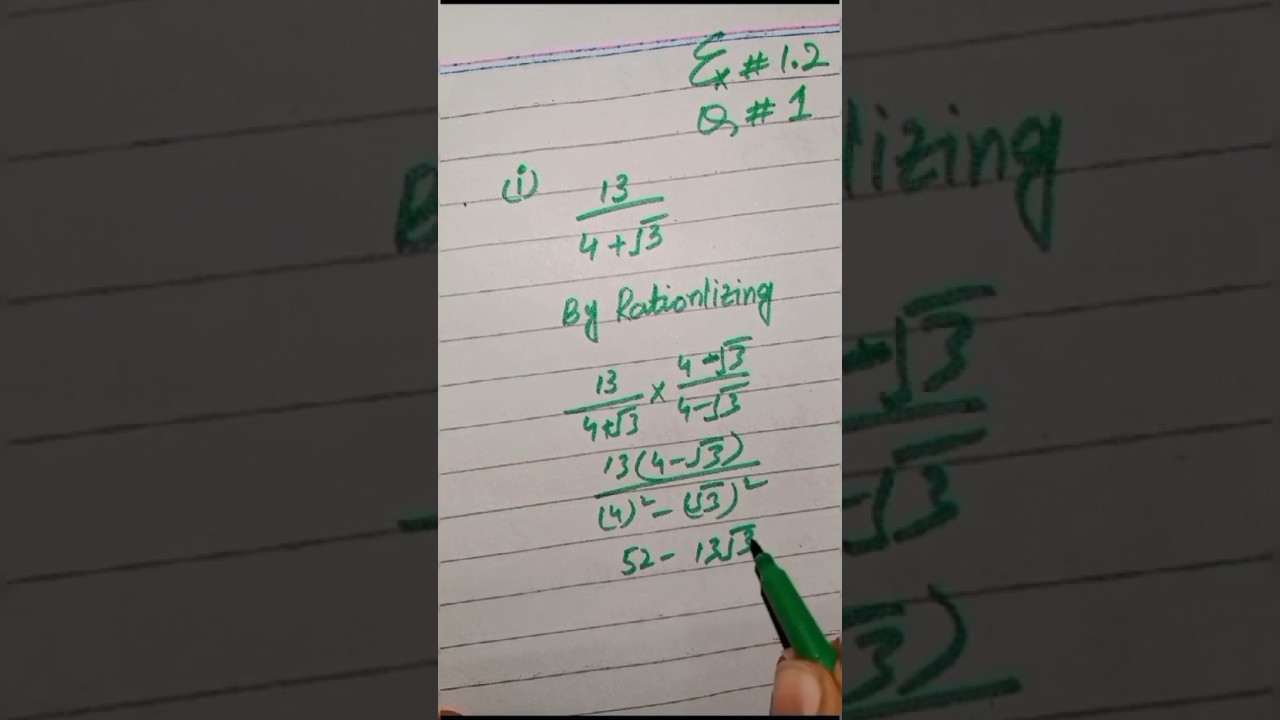 Ex # 1.2
Q # 1
(i) 13/(4+√3)
By Rationlizing
13/(4+√3) × (4-√3)/(4-√3)
13(4-√3)/((4)² - (√3)²)
52 - 13√3